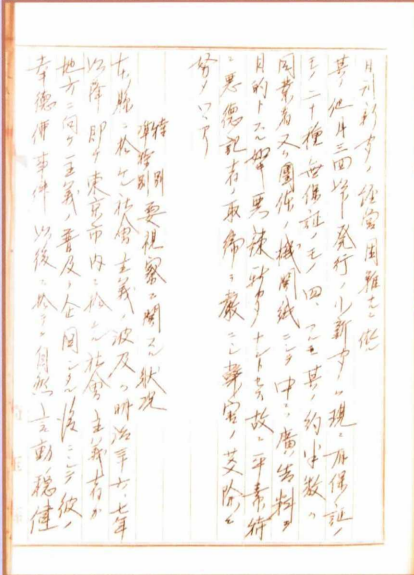 日刊新聞ノ経営困難ナルニ依ル
其ノ他月三四回以下発行ノ小新聞ハ現ニ有保証ノ
モノ二十種無保証ノモノ四、アルモ其ノ約半数ハ
同業者又ハ団体ノ機関紙ニシテ中ニハ広告料ヲ
目的トスル 悪辣 ナシトセス故ニ平素特
ニ悪徳記者ノ取締ヲ厳ニシ弊害ノ芟除ニ
努メツヽアリ
特別
準特別 要視察ニ関スル状況
本県ニ於ケル社会主義ノ波及ハ明治三十六、七年
以降即チ東京市内ニ於ケル社会主義者カ
地方ニ向テ主義ノ普及ヲ企図シタル後ニシテ彼ノ
幸徳事件以後ニ於テハ自然言動ノ穏健